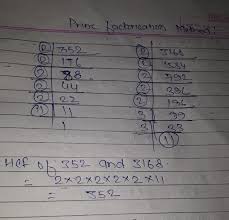 Prime factorisation Method:
2 352 2 3168
2 176 2 1584
2 88 2 792
2 44 2 396
2 22 2 196
11 11 3 99
1 3 33
11
HCF of 352 and 3168
= 2×2×2×2×2×11
= 352